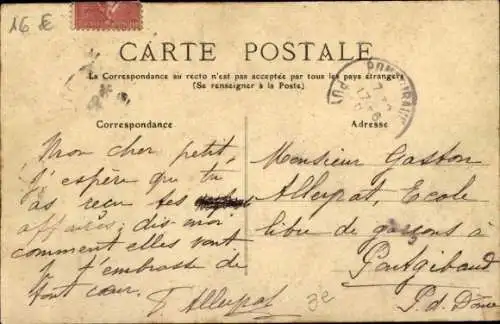 16 E
CARTE POSTALE
La Correspondance au recto n'est pas acceptée par tous les pays étrangers
(Se renseigner à la Poste)
Correspondance
Adresse
Mon cher petit,
J'espère que tu
as reçu tes
affaires; dis moi
comment elles vont
Je t'embrasse de
tout cœur.
Monsieur Gaston
École
libre de garçons à
Pontgibaud
P. d. Dôme
3e